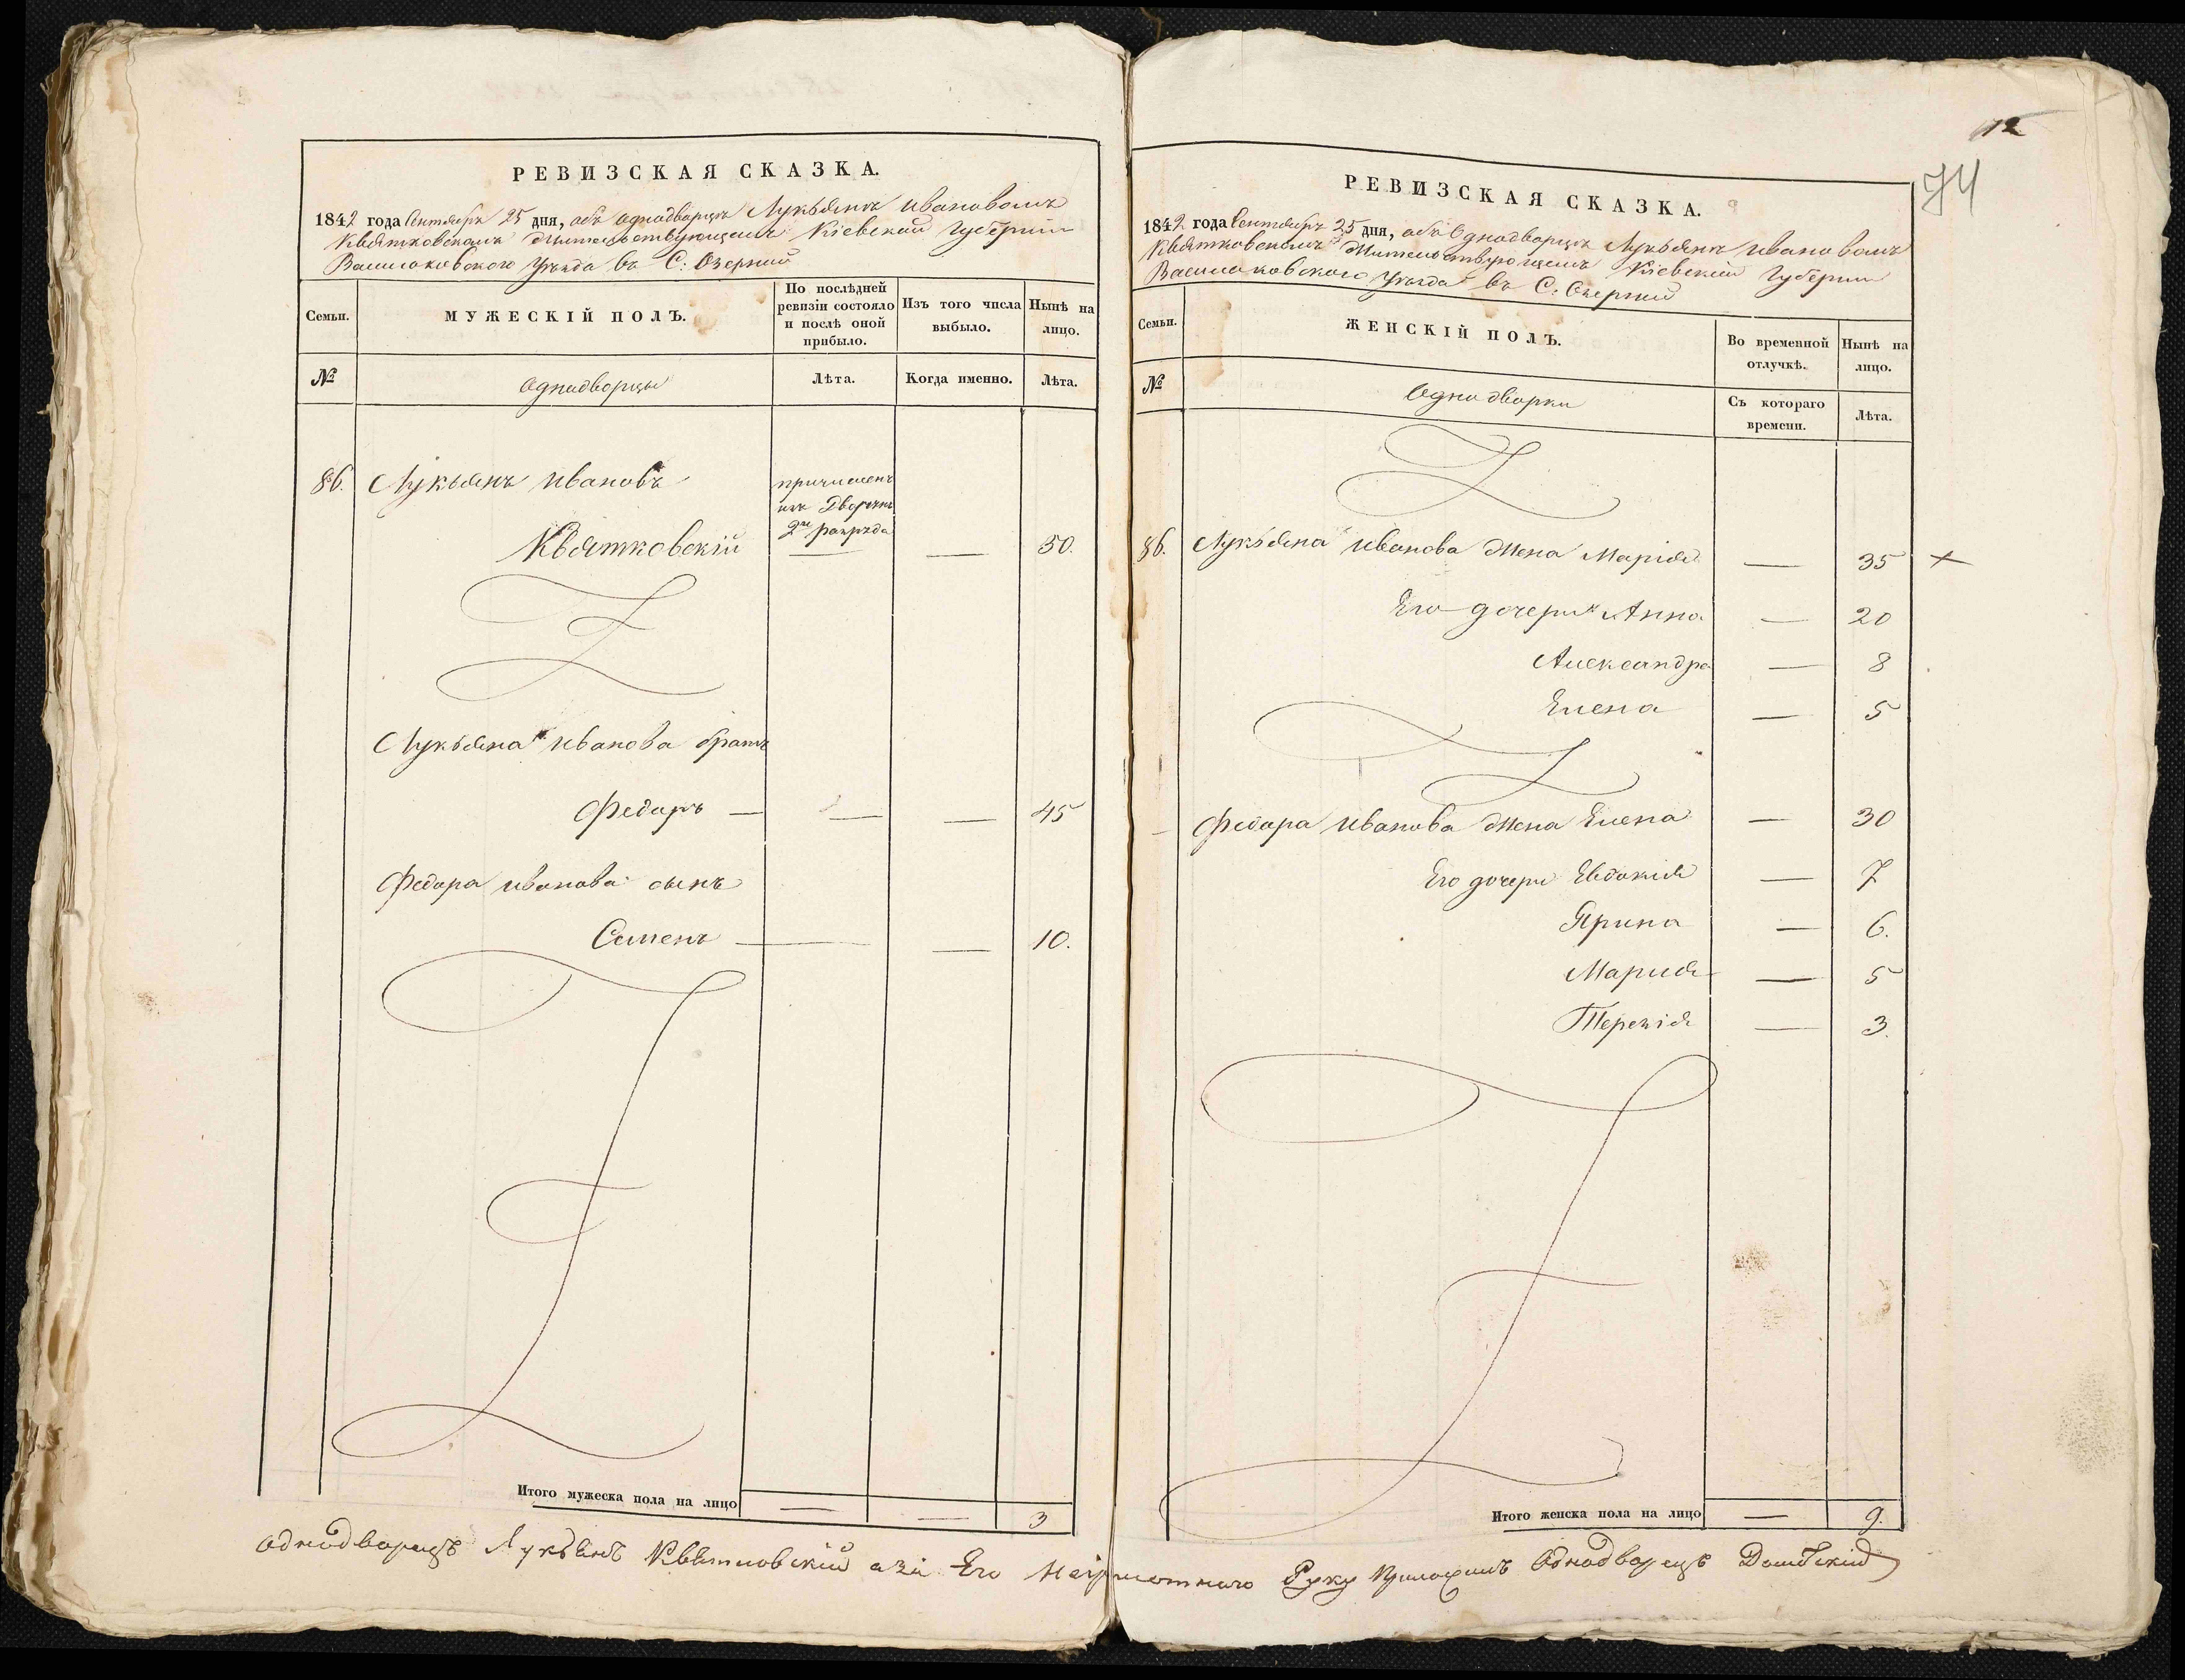 РЕВИЗСКАЯ СКАЗКА.
1842 года Сентября 25 дня, объ однодворцѣ Лукьянѣ Ивановомъ
Квятковскомъ жительствующемъ Кіевской Губерніи
Васильковского Уѣзда въ С: Озерной
Семьи.
МУЖЕСКІЙ ПОЛЪ.
По послѣдней
ревизіи состояло
и послѣ оной
прибыло.
Изъ того числа
выбыло.
Нынѣ на
лицо.
№
Однодворцы
Лѣта.
Когда именно.
Лѣта.
86. Лукьянъ Ивановъ
причисленъ
изъ Дворянъ
2го разряда
Квятковскій — — 50.
Лукьяна Иванова братъ
Федоръ — — — 45
Федора Иванова сынъ
Семенъ — — 10.
Итого мужеска пола на лицо — — 3
Однодворецъ Лукьянъ Квятковскій а за Его Неграмотного Руку Приложилъ Однодворецъ
12
74
РЕВИЗСКАЯ СКАЗКА.
1842 года Сентября 25 дня, объ Однодворцѣ Лукьянѣ Ивановомъ
Квятковскомъ Жительствующемъ Кіевской Губерніи
Васильковского Уѣзда въ С: Озерной
Семьи.
ЖЕНСКІЙ ПОЛЪ.
Во временной
отлучкѣ.
Нынѣ на
лицо.
№
Однодворки
Съ котораго
времени.
Лѣта.
86. Лукьяна Иванова жена Марія — 35 ×
Его дочери Анна — 20
Александра — 8
Елена — 5
Федора Иванова жена Елена — 30
Его дочери Евдокія — 7
Ярина — 6.
Мария — 5
Терезія — 3.
Итого женска пола на лицо — 9.